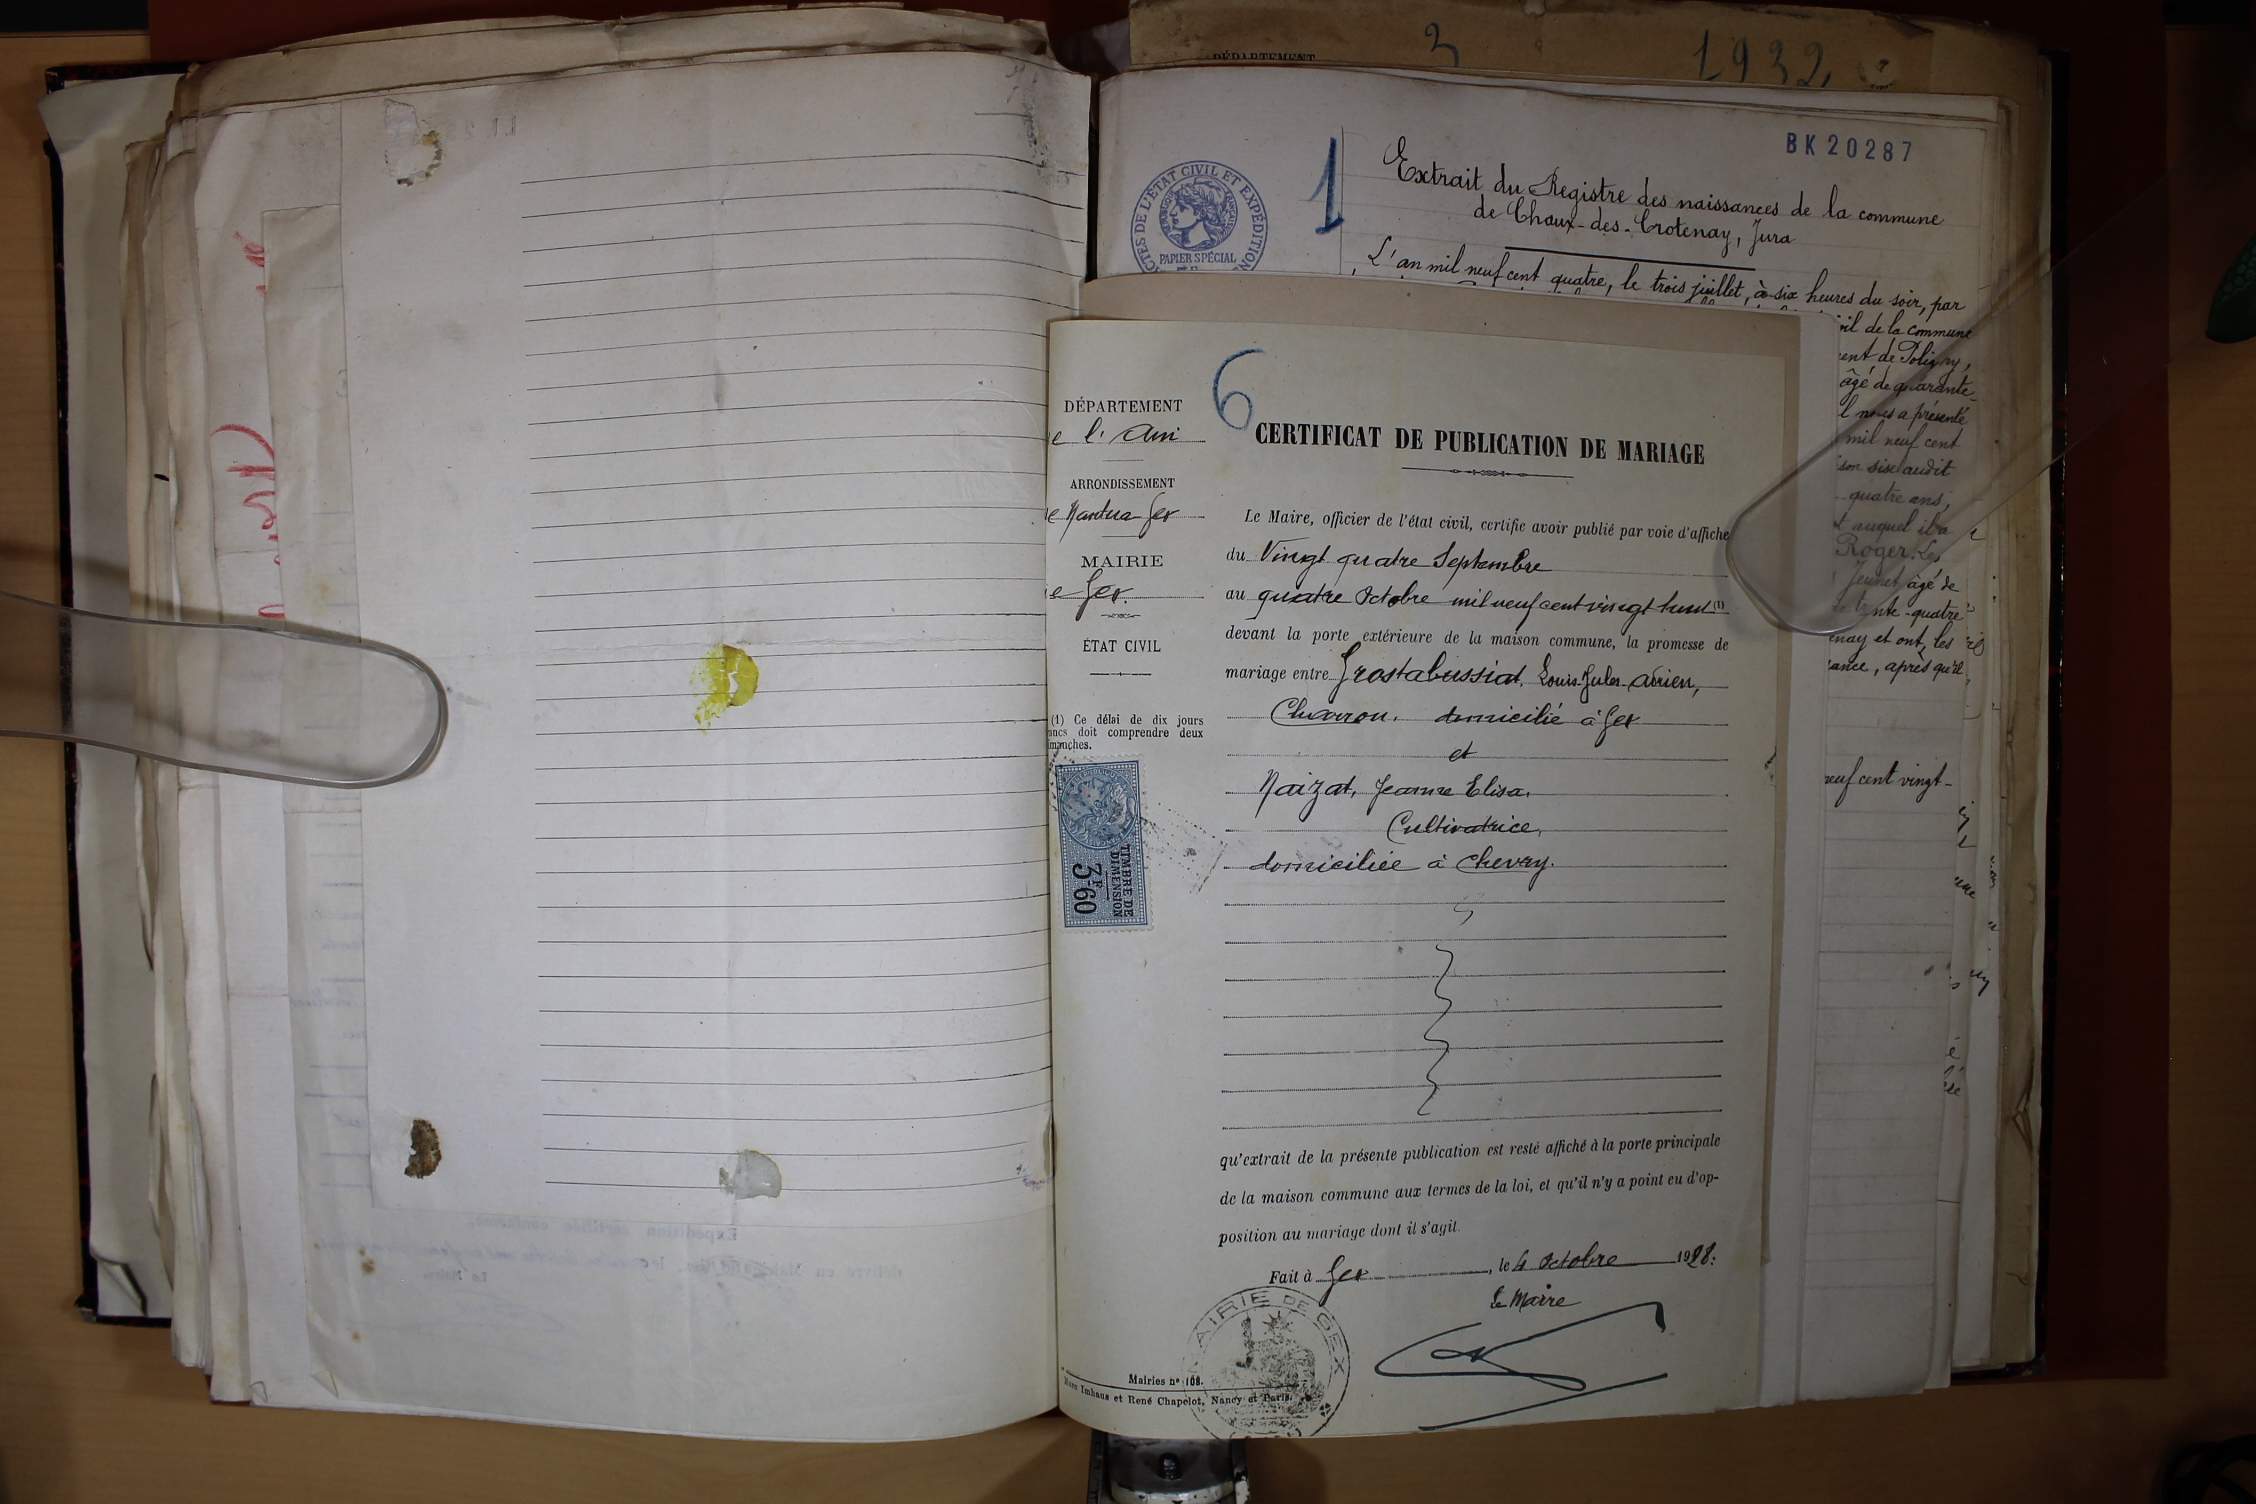 DÉPARTEMENT
3
1932
BK 20287
1
ACTES DE L'ÉTAT CIVIL ET EXPÉDITION
RÉPUBLIQUE FRANÇAISE
PAPIER SPÉCIAL
Extrait du Registre des naissances de la commune
de Chaux-des-Crotenay, Jura
L'an mil neuf cent quatre, le trois juillet, à six heures du soir, par
vil de la commune
ent de Poligny,
âgé de quarante-
l nous a présenté
mil neuf cent
son sise audit
quatre ans,
t auquel il a
Roger. Les
Jeunet, âgé de
nte-quatre
enay et ont, les
sance, après qu'il
neuf cent vingt-
DÉPARTEMENT
e l'Ain
ARRONDISSEMENT
e Nantua Gex
MAIRIE
e Gex.
ÉTAT CIVIL
(1) Ce délai de dix jours
ancs doit comprendre deux
imanches.
TIMBRE DE
DIMENSION
3F60
6
CERTIFICAT DE PUBLICATION DE MARIAGE
Le Maire, officier de l'état civil, certifie avoir publié par voie d'affiche
du Vingt quatre Septembre
au quatre Octobre mil neuf cent vingt huit (1)
devant la porte extérieure de la maison commune, la promesse de
mariage entre Grostabussiat, Louis Jules Adrien,
Charron, domicilié à Gex
et
Naizat, Jeanne Elisa,
Cultivatrice,
domiciliée à Chevry.
qu'extrait de la présente publication est resté affiché à la porte principale
de la maison commune aux termes de la loi, et qu'il n'y a point eu d'op-
position au mariage dont il s'agit.
Fait à Gex, le 4 Octobre 1928.
Le Maire
MAIRIE DE GEX
Mairies n° 108.
Marc Imhaus et René Chapelot, Nancy et Paris.